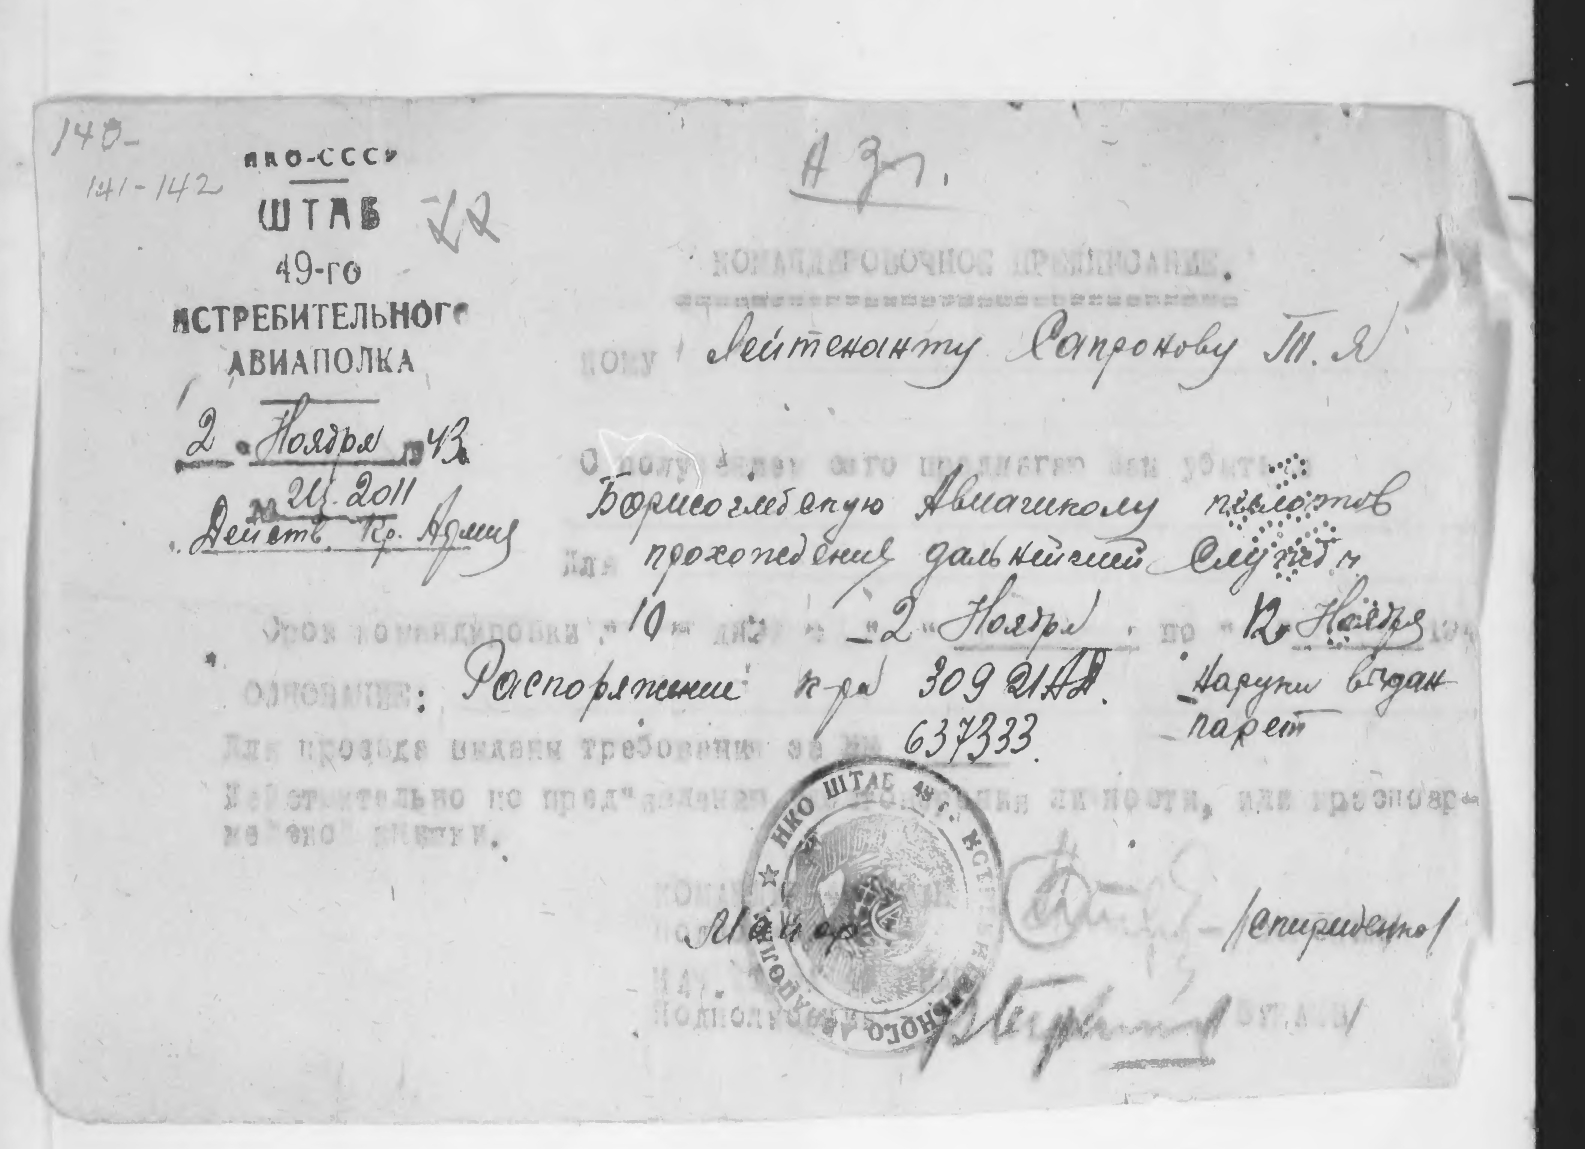 140-
141-142
НКО-СССР
ШТАБ
49-го
ИСТРЕБИТЕЛЬНОГО
АВИАПОЛКА
2 Ноября 1943
№ 2011
Действ. Кр. Армия
КОМАНДИРОВОЧНОЕ ПРЕДПИСАНИЕ.
КОМУ Лейтенанту Сапронову Т. Я
С получением сего предлагаю Вам убыть в
Борисоглебскую Авиашколу пилотов
Для прохождения дальнейшей Службы
Срок командировки "10" дней с "2" Ноября по "12" Ноября 194
ОСНОВАНИЕ: Распоряжение к-ра 309 ИАД. Наруки выдан
парет
Для проезда выданы требования за № 637333.
Действительно по пред"явлении удостоверения личности, или красноар-
мейской книжки.
НКО ШТАБ 49 г. ИСТРЕБИТЕЛЬНОГО АВИАПОЛКА
Майор /Спириденко/
Подполковник